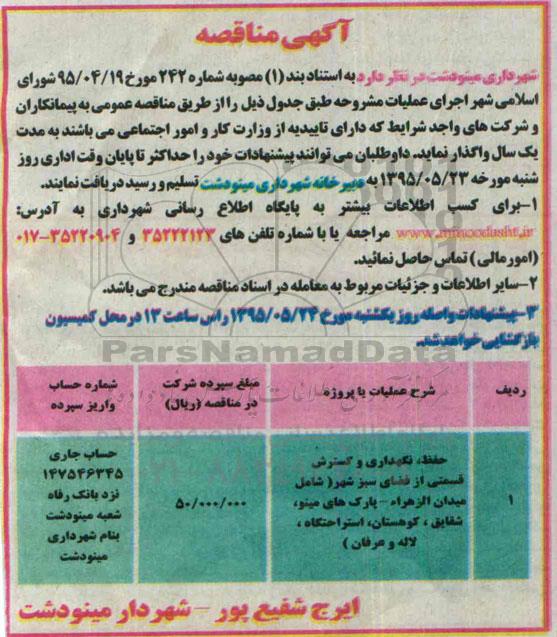 آگهی مناقصه
شهرداری مینودشت در نظر دارد به استناد بند (۱) مصوبه شماره ۲۴۲ مورخ ۹۵/۰۴/۱۹ شورای
اسلامی شهر اجرای عملیات مشروحه طبق جدول ذیل را از طریق مناقصه عمومی به پیمانکاران
و شرکت های واجد شرایط که دارای تاییدیه از وزارت کار و امور اجتماعی می باشند به مدت
یک سال واگذار نماید. داوطلبان می توانند پیشنهادات خود را حداکثر تا پایان وقت اداری روز
شنبه مورخه ۱۳۹۵/۰۵/۲۳ به دبیرخانه شهرداری مینودشت تسلیم و رسید دریافت نمایند.
۱-برای کسب اطلاعات بیشتر به پایگاه اطلاع رسانی شهرداری به آدرس:
مراجعه یا با شماره تلفن های ۳۵۲۲۲۱۲۳ و ۳۵۲۲۰۹۰۴-۰۱۷
(امور مالی) تماس حاصل نمائید.
۲-سایر اطلاعات و جزئیات مربوط به معامله در اسناد مناقصه مندرج می باشد.
۳-پیشنهادات واصله روز یکشنبه مورخ ۱۳۹۵/۰۵/۲۴ راس ساعت ۱۳ در محل کمیسیون
بازگشایی خواهد شد.
ParsNamadData
ردیف
شرح عملیات یا پروژه
مبلغ سپرده شرکت
در مناقصه (ریال)
شماره حساب
واریز سپرده
۱
حفظ، نگهداری و گسترش
قسمتی از فضای سبز شهر( شامل
میدان الزهراء - پارک های مینو،
شقایق ، کوهستان، استراحتگاه ،
لاله و عرفان )
۵۰/۰۰۰/۰۰۰
حساب جاری
۱۴۷۵۴۶۳۴۵
نزد بانک رفاه
شعبه مینودشت
بنام شهرداری
مینودشت
ایرج شفیع پور - شهردار مینودشت